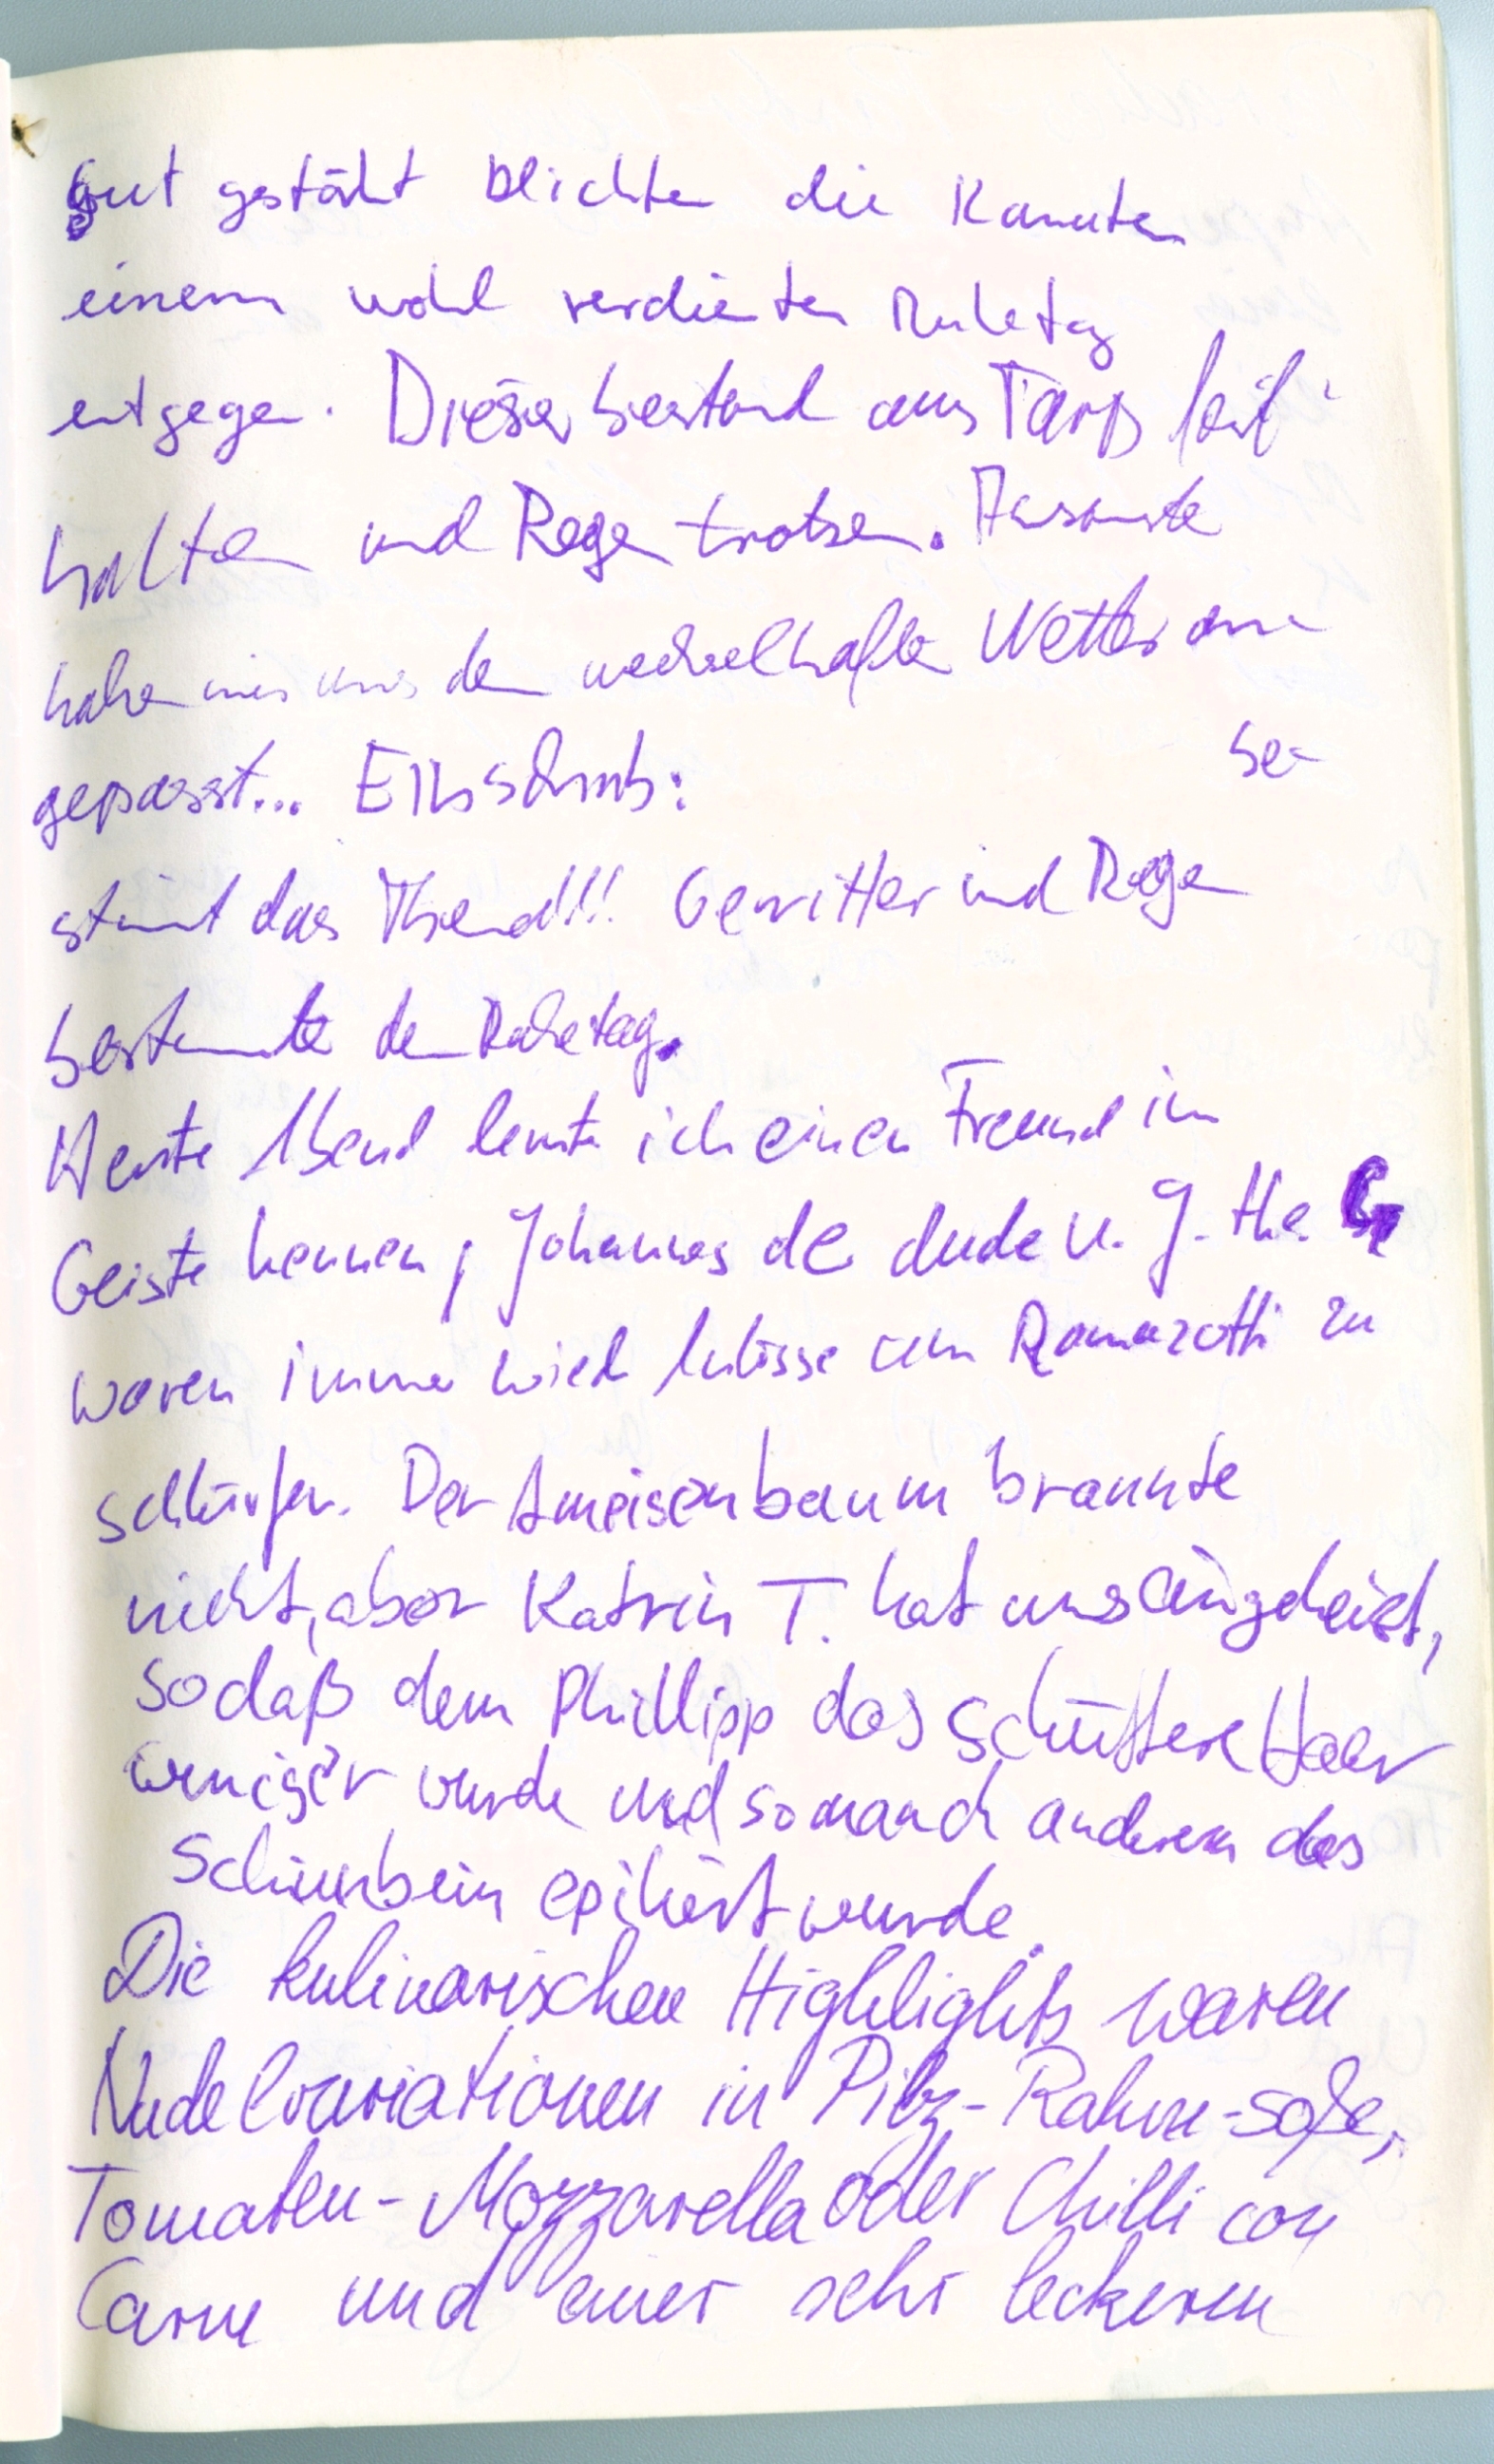 gut gestärkt blickten die Kanuten
einem wohl verdienten Ruhetag
entgegen. Dieser bestand aus Tarps fest
halten und Regen trotzen.
haben wir uns dem wechselhaften Wetter an
gepasst... be-
stimmt das Thema!!! Gewitter und Regen
bestimmte den Ruhetag.
Heute Abend lernte ich einen Freund im
Geiste kennen, Johannes de dude u. J. the
waren immer wied um Ramazotti zu
schlürfen. Der Ameisenbaum brannte
nicht, aber Katrin T. hat uns eingeheizt,
so daß dem Phillipp das schüttere Haar
weniger wurde und so manch anderem das
Schienbein epiliert wurde.
Die kulinarischen Highlights waren
Nudelvariationen in Pilz-Rahm-soße,
Tomaten-Mozzarella oder Chilli con
Carne und einer sehr leckeren